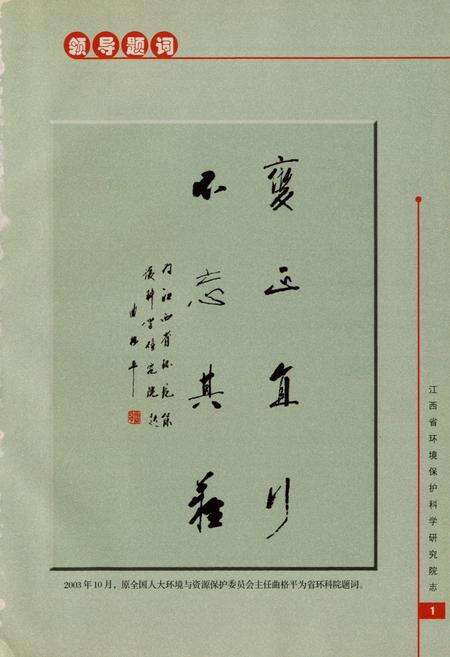 领导题词
变正直行
不忘其艰
为江西省环境保
护科学研究院题
曲格平
2003年10月，原全国人大环境与资源保护委员会主任曲格平为省环科院题词。
江西省环境保护科学研究院志
1